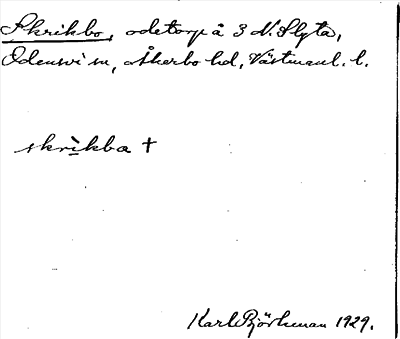 Skrikbo, odetorp å 3 N. Slyta,
Odensvi sn, Åkerbo hd, Västmanl. l.
skrìkba †
Karl Björkman 1929.